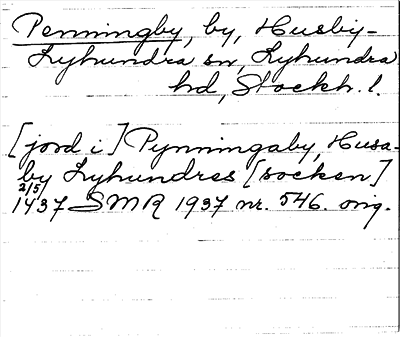 Penningby, by, Husby-
Lyhundra sn, Lyhundra
hd, Stockh. l.
[jord i] Pynningaby, Husa-
by Lyhundres [socken]
2/5
1437 SMR 1937 nr. 546. orig.